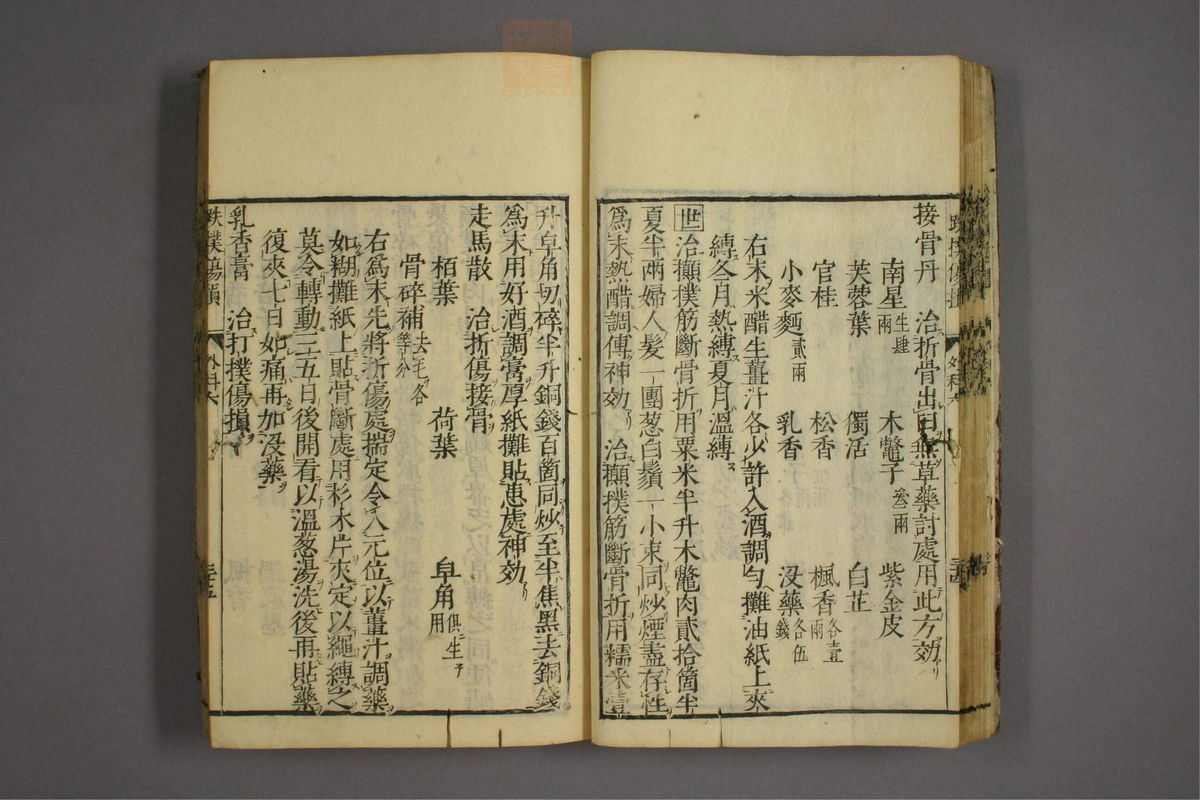 接骨丹　治折骨出臼無草藥討處用此方効
南星生肆兩　木鼈子叁兩　紫金皮
芙蓉葉　獨活　白芷
官桂　松香　楓香各壹兩
小麥麵貳兩　乳香　没藥各伍錢
右末米醋生薑汁各少許入酒調勻攤油紙上夾
縛冬月熱縛夏月溫縛
世治攧撲筋斷骨折用粟米半升木鼈肉貳拾箇半
夏半兩婦人髮一團葱白鬚一小束同炒煙盡存性
爲末熱醋調傅神効　治攧撲筋斷骨折用糯米壹
升皁角切碎半升銅錢百箇同炒至半焦黑去銅錢
爲末用好酒調膏厚紙攤貼患處神効
走馬散　治折傷接骨
栢葉　荷葉　皁角俱生用
骨碎補去毛各等分
右爲末先將折傷處揣定令入元位以薑汁調藥
如糊攤紙上貼骨斷處用杉木片夾定以繩縛之
莫令轉動三五日後開看以溫葱湯洗後再貼藥
復夾七日如痛再加没藥
乳香膏　治打撲傷損
跌撲傷損　外科六　三十五